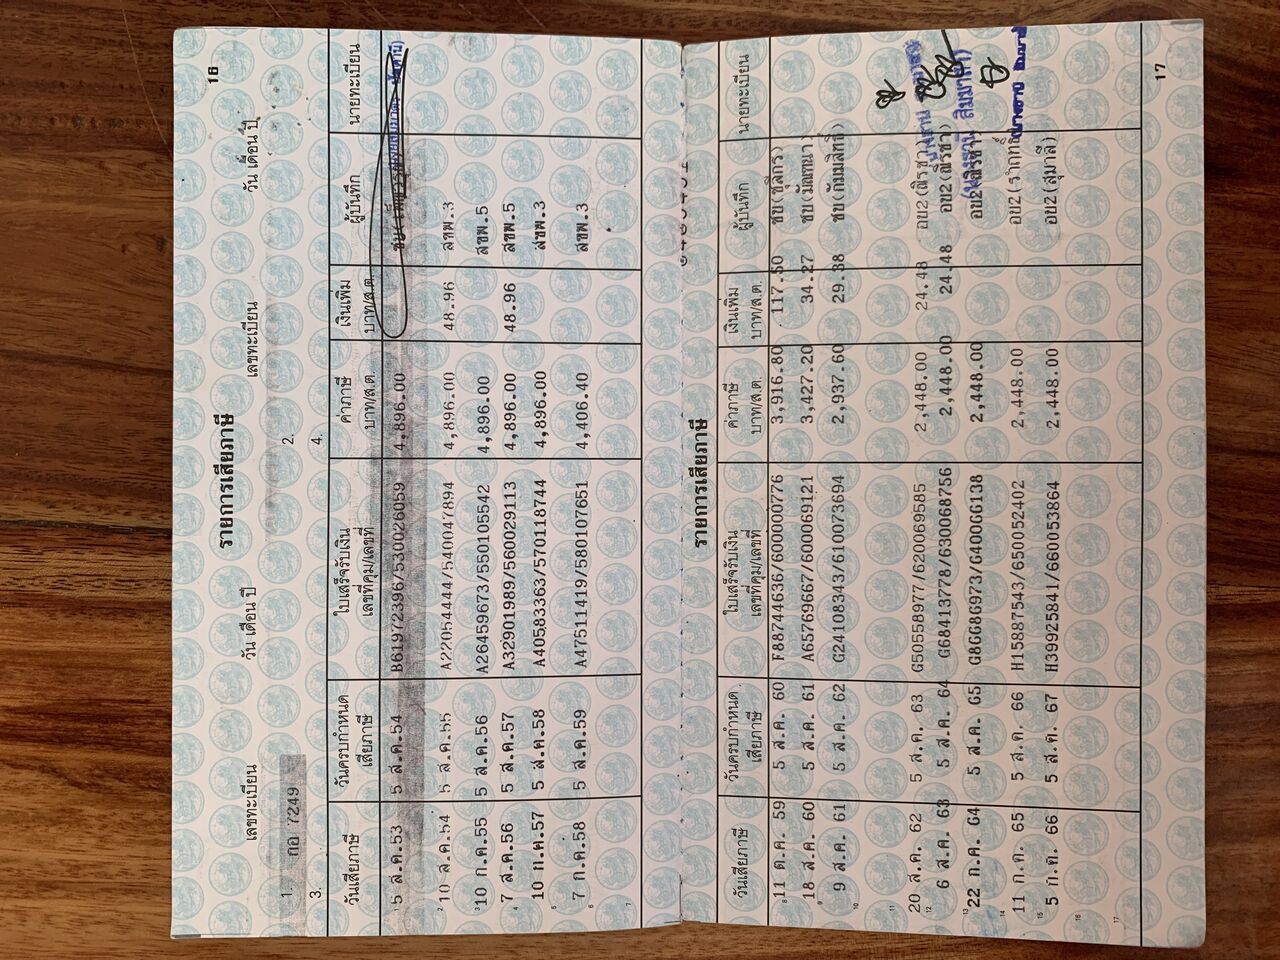 16
รายการเสียภาษี
เลขทะเบียน วัน เดือน ปี เลขทะเบียน วัน เดือน ปี
1. กอ 7249 2.
3. 4.
วันเสียภาษี วันครบกำหนดเสียภาษี ใบเสร็จรับเงิน เลขที่คุม/เลขที่ ค่าภาษี บาท/ส.ต. เงินเพิ่ม บาท/ส.ต. ผู้บันทึก นายทะเบียน
5 ส.ค.53 5 ส.ค.54 B61972396/530026059 4,896.00
2 10 ส.ค.54 5 ส.ค.55 A22054444/540047894 4,896.00 48.96 สขพ.3
3 10 ก.ค.55 5 ส.ค.56 A26459673/550105542 4,896.00 สขพ.5
4 7 ส.ค.56 5 ส.ค.57 A32901989/560029113 4,896.00 48.96 สขพ.5
5 10 ก.ค.57 5 ส.ค.58 A40583363/570118744 4,896.00 สขพ.3
6 7 ก.ค.58 5 ส.ค.59 A47511419/580107651 4,406.40 สขพ.3
7
รายการเสียภาษี
วันเสียภาษี วันครบกำหนดเสียภาษี ใบเสร็จรับเงิน เลขที่คุม/เลขที่ ค่าภาษี บาท/ส.ต. เงินเพิ่ม บาท/ส.ต. ผู้บันทึก นายทะเบียน
8 11 ต.ค. 59 5 ส.ค. 60 F88744636/600000776 3,916.80 117.50 ชบ(ชลิกร)
9 18 ส.ค. 60 5 ส.ค. 61 A65769667/600069121 3,427.20 34.27 ชบ(มัณฑนา)
10 9 ส.ค. 61 5 ส.ค. 62 G24108343/610073694 2,937.60 29.38 ชบ(กัมมสิทธิ์)
11
20 ส.ค. 62 5 ส.ค. 63 G50558977/620069585 2,448.00 24.48 อบ2(ณิรชา)
12 6 ส.ค. 63 5 ส.ค. 64 G68413778/630068756 2,448.00 24.48 อบ2(ณิรชา)
13 22 ก.ค. 64 5 ส.ค. 65 G86686973/640066138 2,448.00
14 11 ก.ค. 65 5 ส.ค. 66 H15887543/650052402 2,448.00
15 5 ก.ค. 66 5 ส.ค. 67 H39925841/660053864 2,448.00 อบ2(สุมาลี)
16
17
17